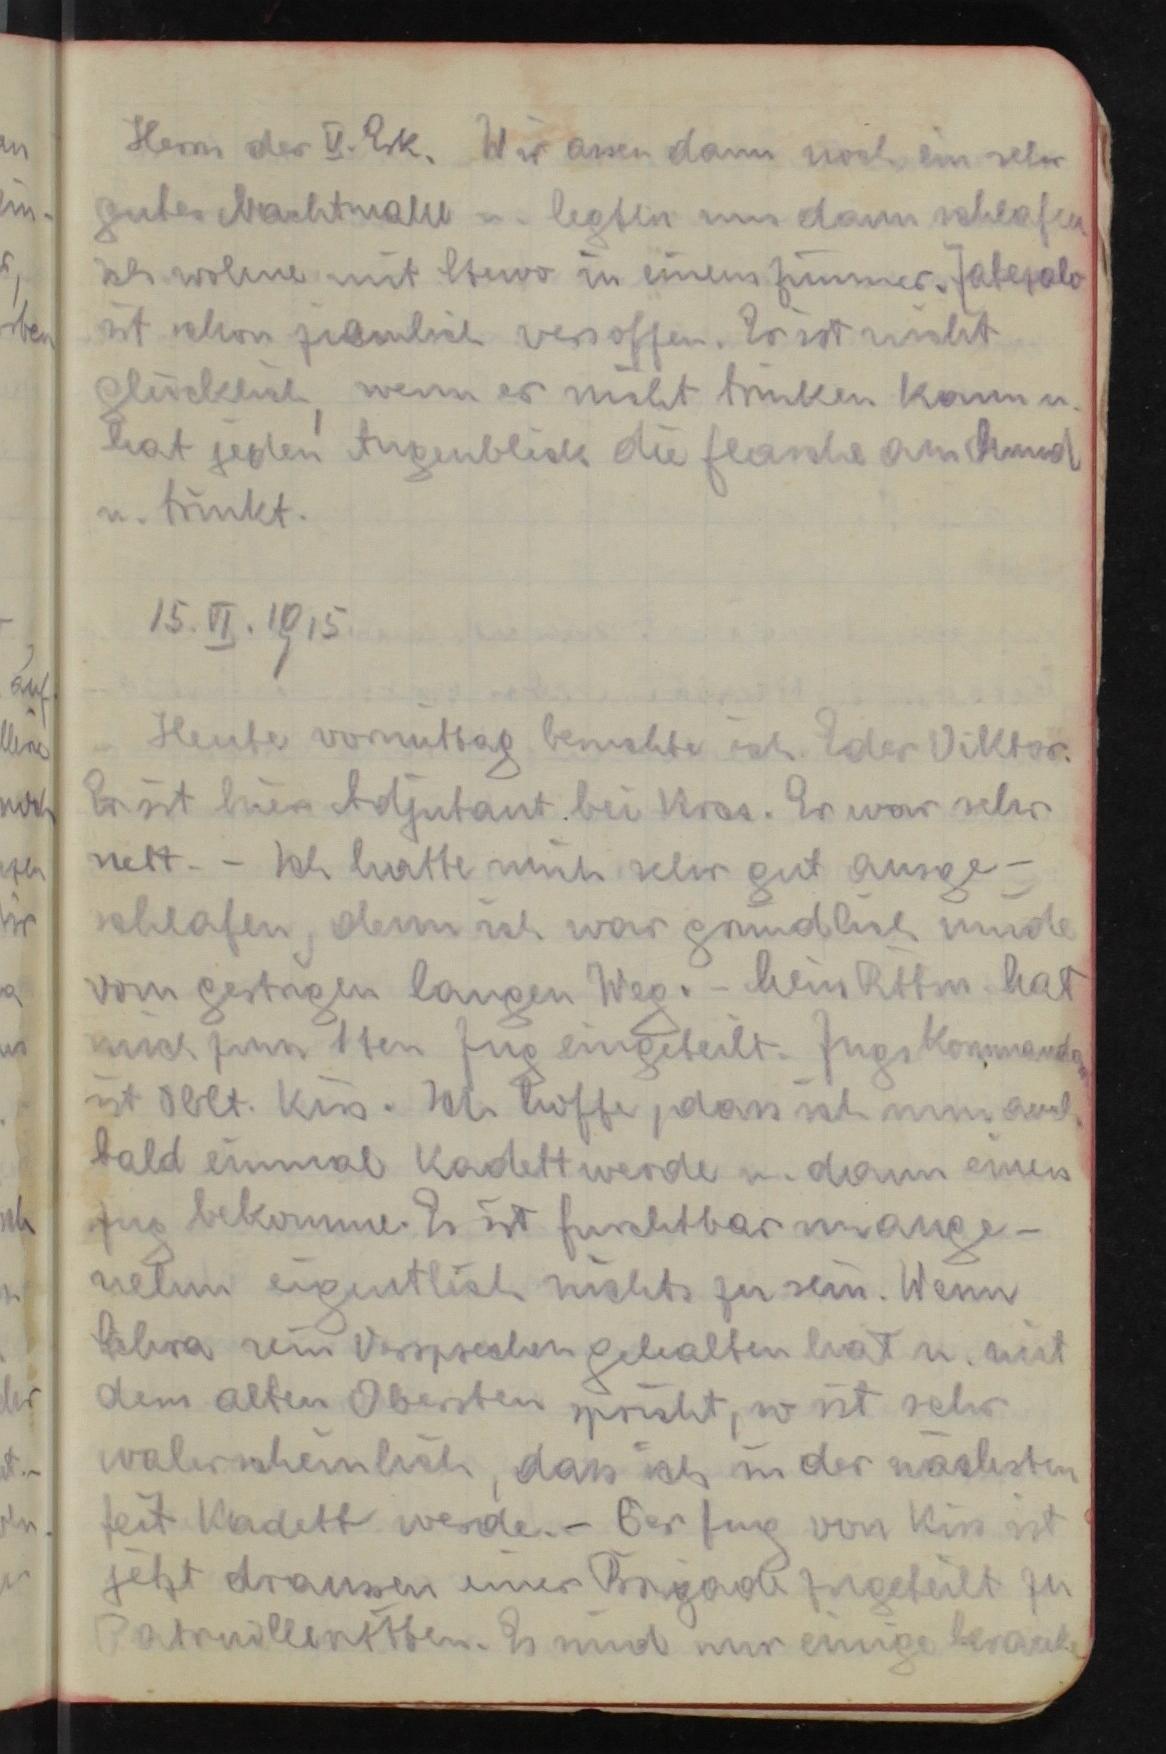 Herrn der V. Esk. Wir assen dann noch ein sehr
gutes Nachtmahl u. legten uns dann schlafen
ich wohne mit in einem Zimmer.
ist schon ziemlich versoffen. Er ist nicht
glücklich, wenn er nicht trinken kann u.
hat jeden Augenblick die Flasche am Mund
u. trinkt.
15. VI. 1915
Heute vormittag besuchte ich Eder Viktor.
Er ist hier Adjutant bei Kras. Er war sehr
nett. – Ich hatte mich sehr gut ausge-
schlafen, denn ich war gründlich müde
vom gestrigen langen Weg. – Mein Rttm. hat
mich zum 1ten Zug eingeteilt. Zugskommandant
ist Oblt. Kiss. Ich hoffe, dass ich nun auch
bald einmal Kadett werde u. dann einen
Zug bekomme. Es ist furchtbar unange-
nehm eigentlich nichts zu sein. Wenn
sein Versprechen gehalten hat u. mit
dem alten Obersten spricht, so ist sehr
wahrscheinlich, dass ich in der nächsten
Zeit Kadett werde. – Der Zug von Kiss ist
jetzt draussen einer Brigade zugeteilt zu
Patrouillenritten. Es sind nur einige kranke